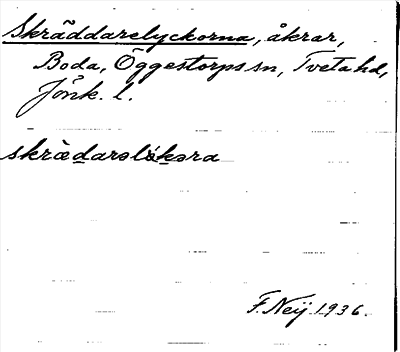 Skräddarelyckorna, åkrar,
Boda, Öggestorps sn, Tveta hd,
Jönk. l.
skrädarəlökəra
F. Neij 1936.